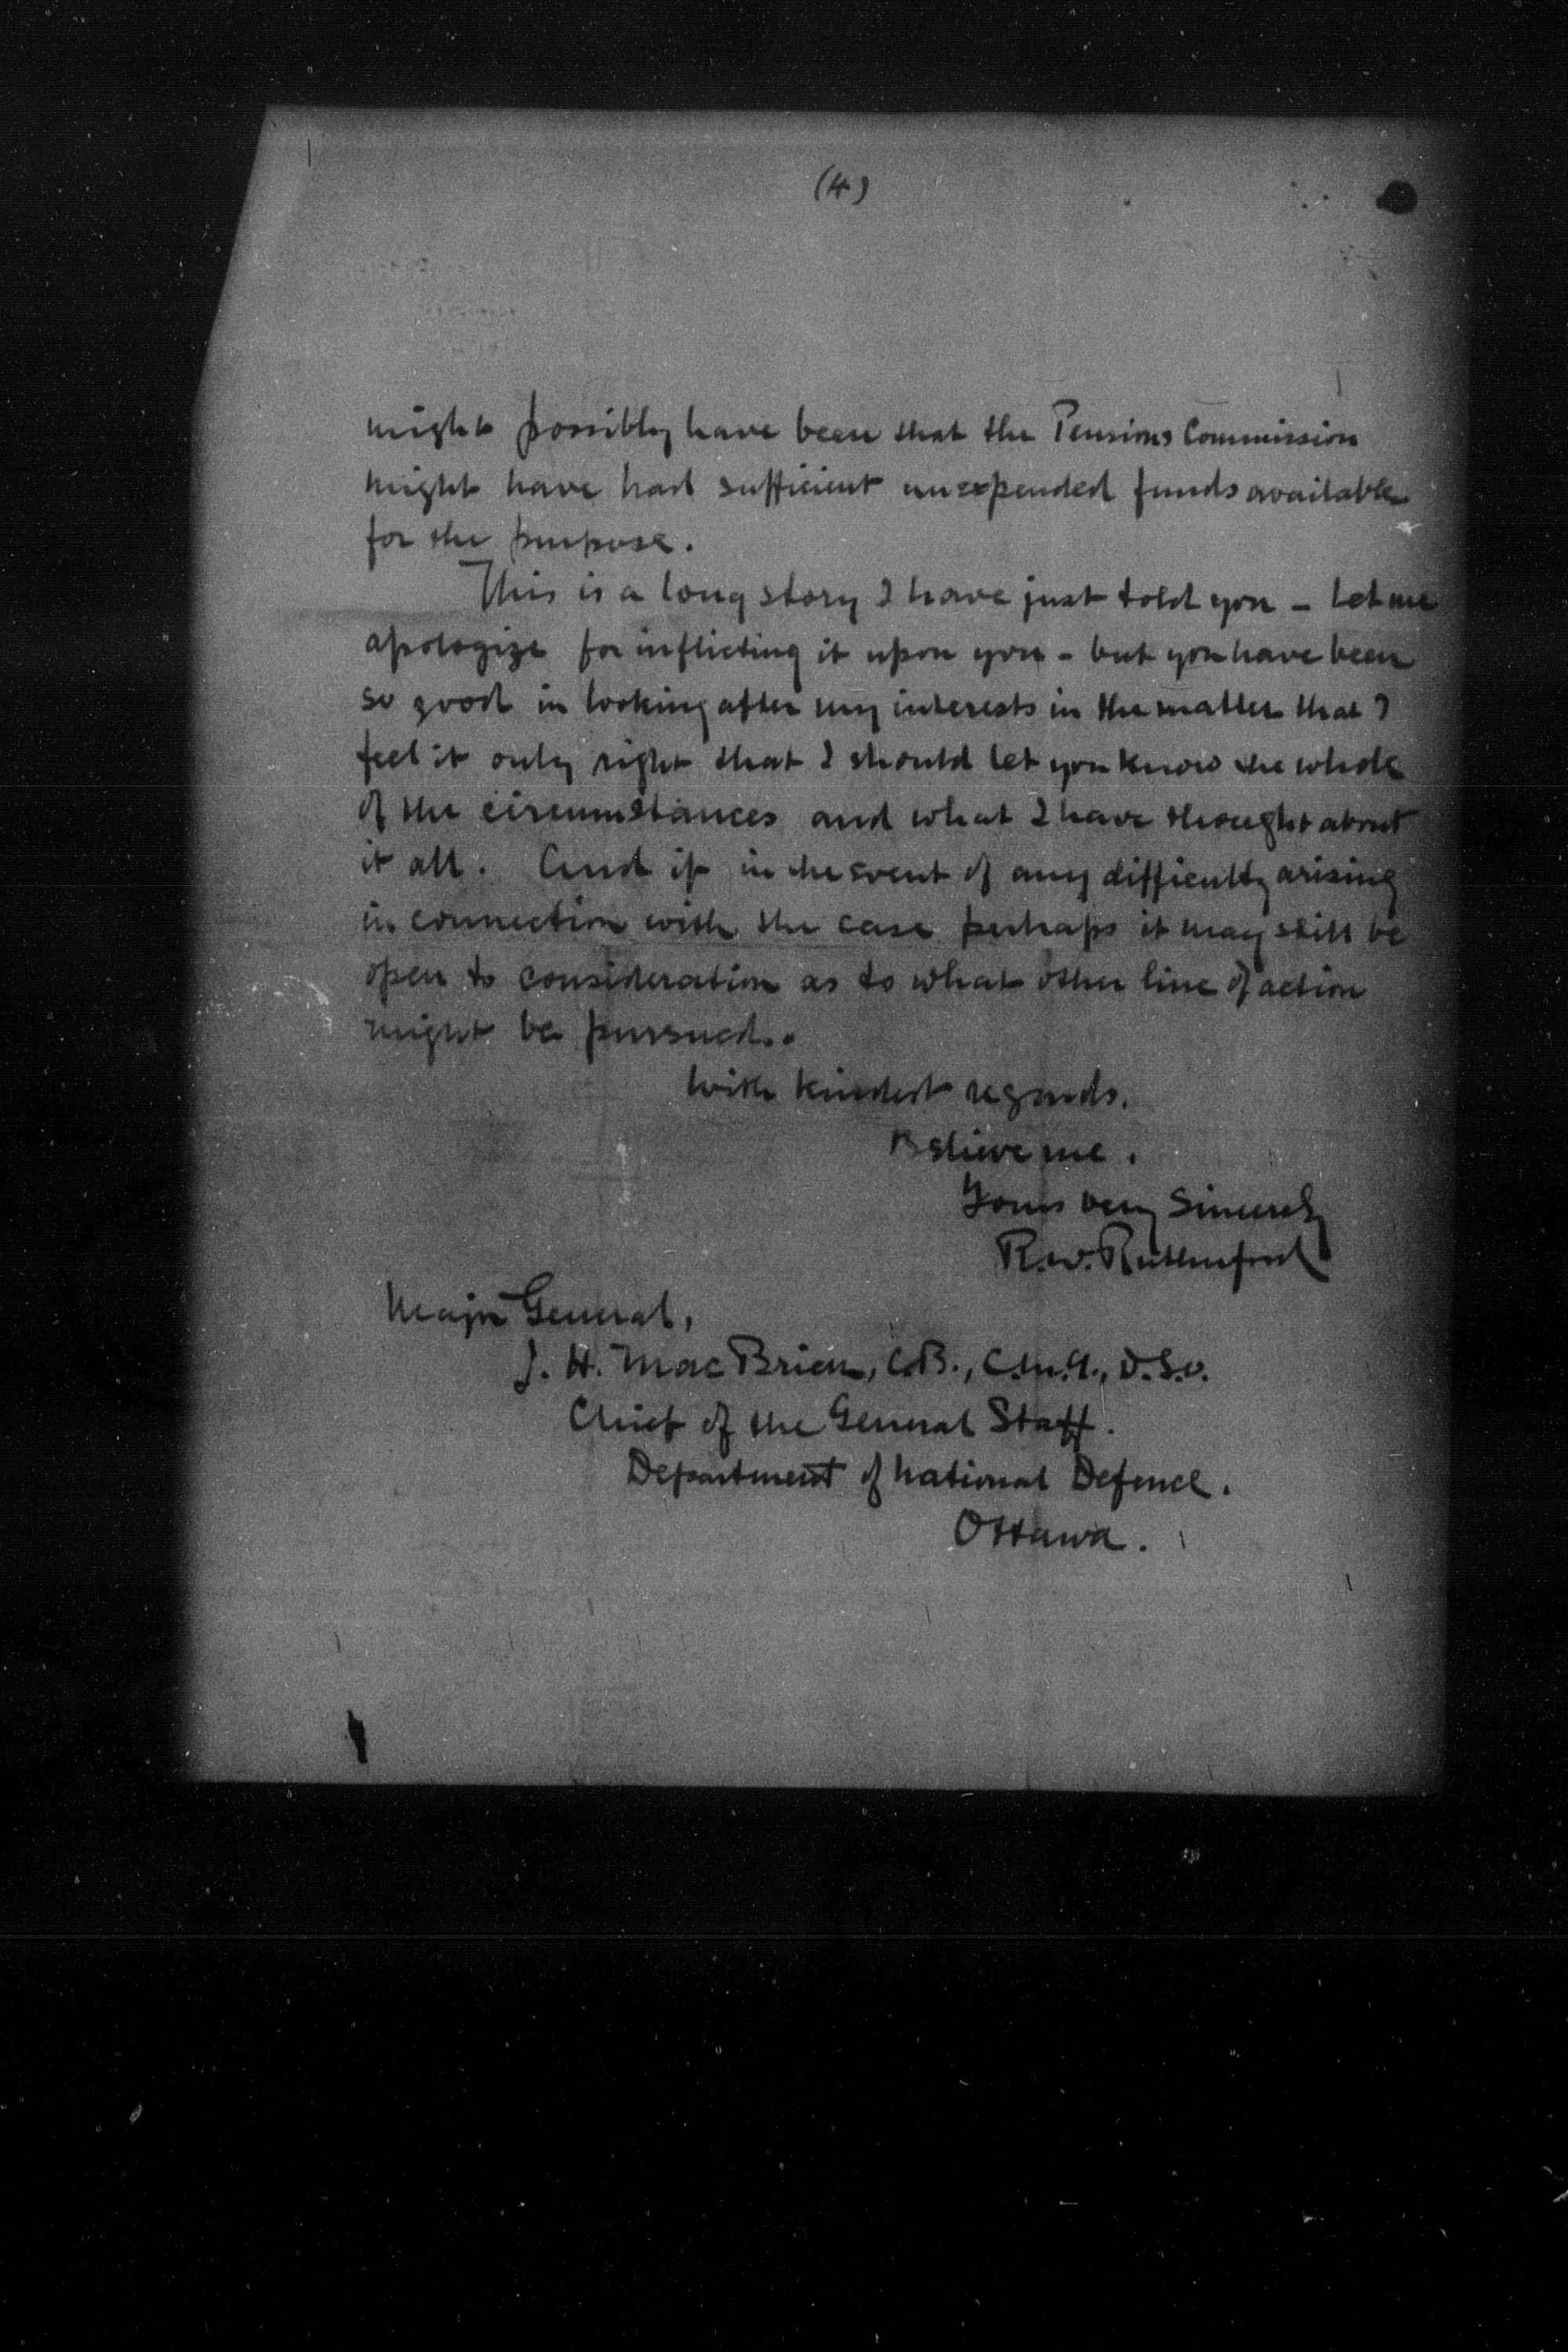 (4)
might possibly have been that the Pensions Commission
might have had sufficient unexpended funds available
for the purpose.
This is a long story I have just told you - Let me
apologize for inflicting it upon you - but you have been
so good in looking after my interests in the matter that I
feel it only right that I should let you know the whole
of the circumstances and what I have thought about
it all. And if in the event of any difficulty arising
in connection with the case perhaps it may still be
open to consideration as to what other line of action
might be pursued.
With kindest regards.
Believe me.
Yours very Sincerely
R.W. Rutherford
Major General,
J. H. MacBrien, C.B., C.M.G., D.S.O.
Chief of the General Staff.
Department of National Defence.
Ottawa.